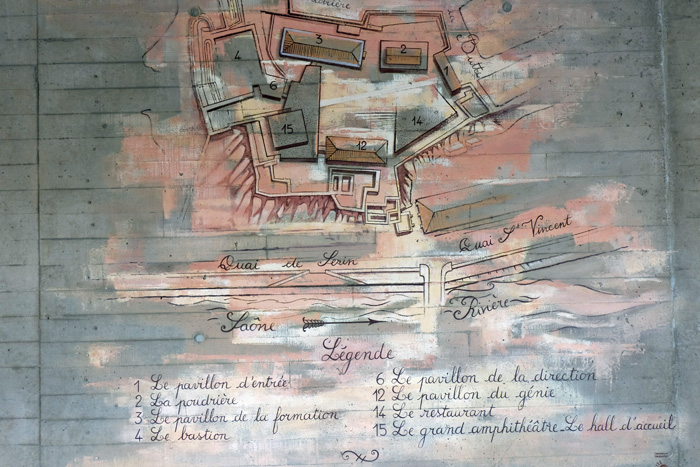 3
2
4
6
15
14
12
Quai de Serin
Quai St Vincent
Saône
Rivière
Légende
1 Le pavillon d'entrée
2 La poudrière
3 Le pavillon de la formation
4 Le bastion
6 Le pavillon de la direction
12 Le pavillon du génie
14 Le restaurant
15 Le grand amphithéâtre_Le hall d'accueil